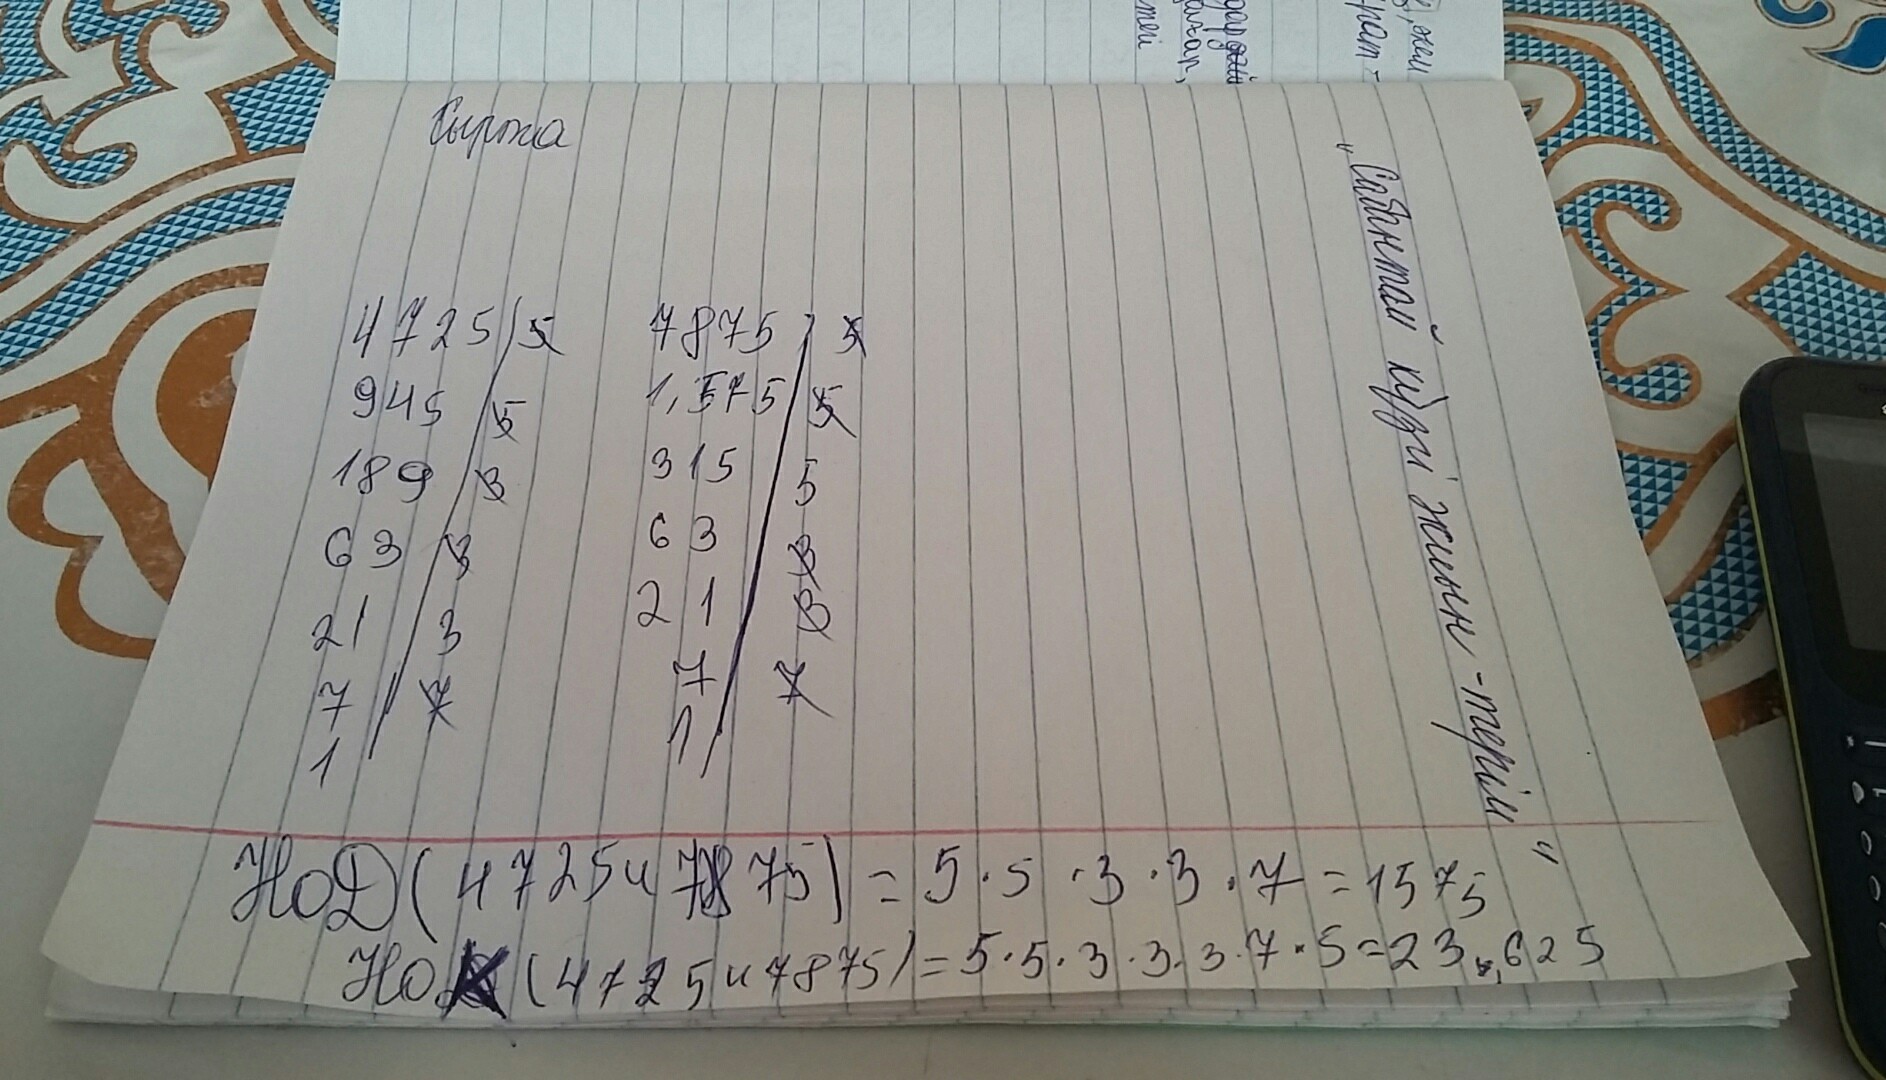 4725 5
945 5
189 3
63 3
21 3
7 7
1
7875 5
1,575 5
315 5
63 3
21 3
7 7
1
НОД (4725 и 7875) = 5·5·3·3·7 = 1575
НОК (4725 и 7875) = 5·5·3·3·3·7·5 = 23,625
"Сабантай күзгі жиын-терім"